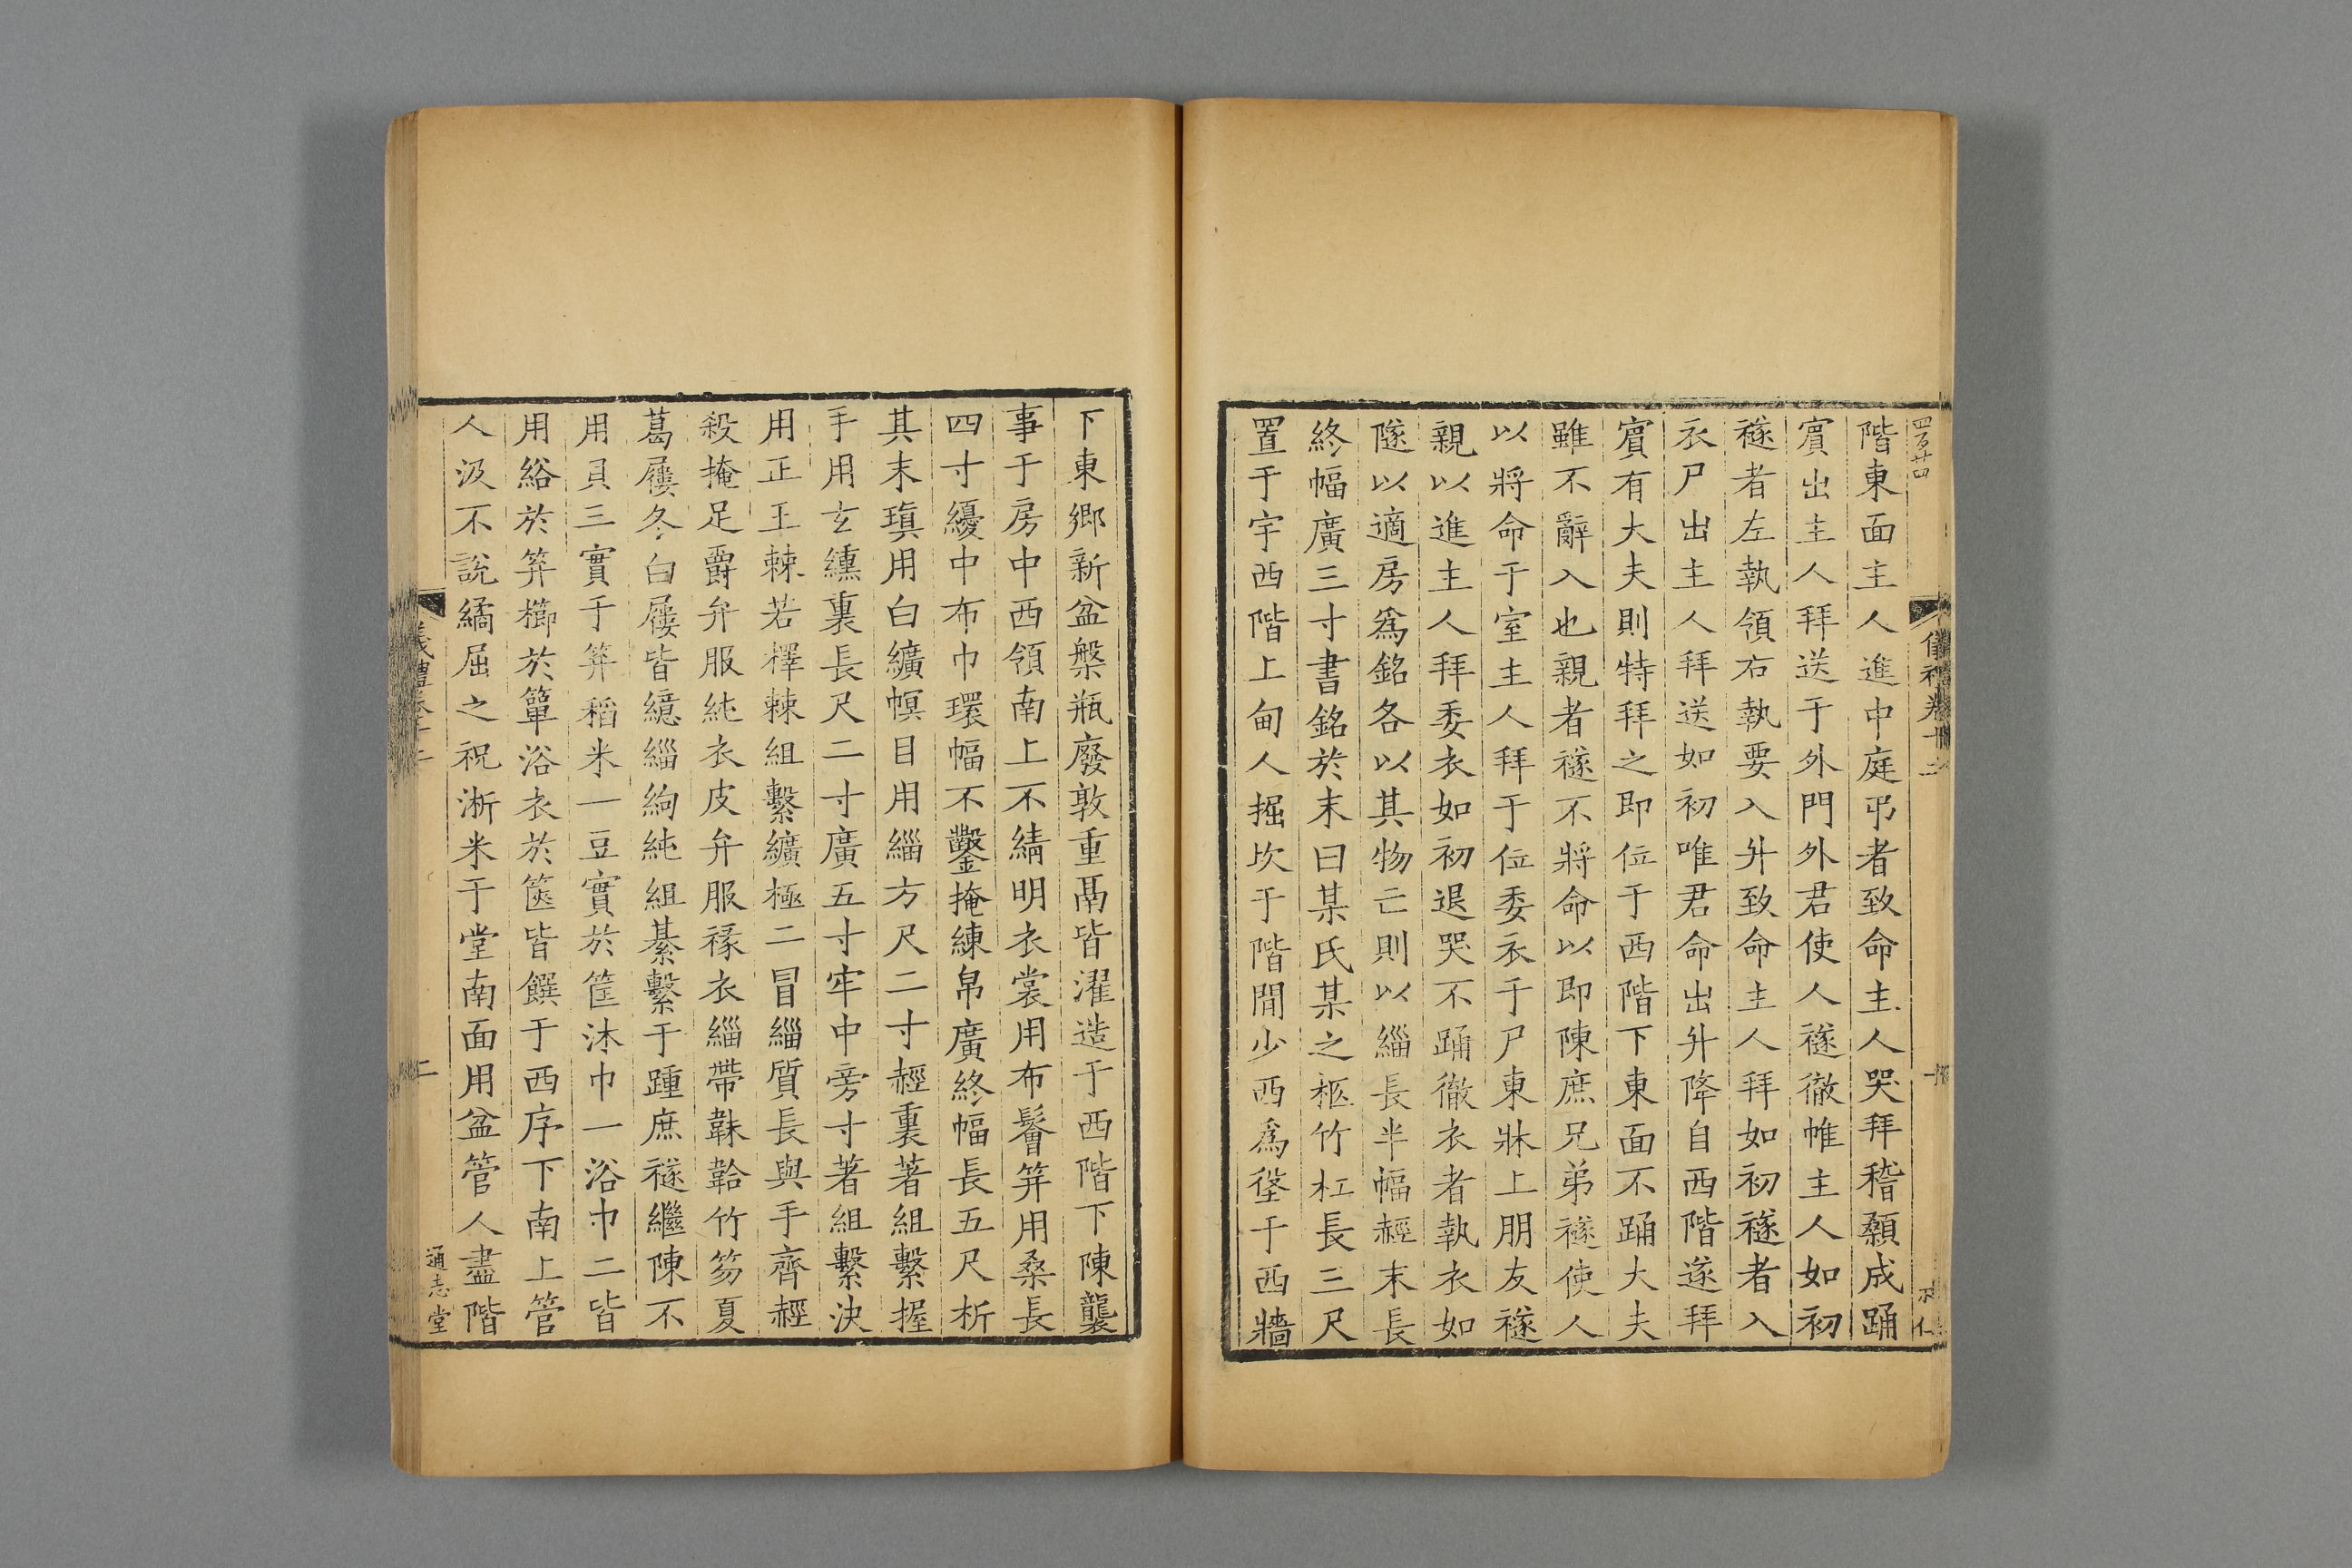 四百廿四
儀禮卷十二
階東面主人進中庭弔者致命主人哭拜稽顙成踊
賓出主人拜送于外門外君使人襚徹帷主人如初
襚者左執領右執要入升致命主人拜如初襚者入
衣尸出主人拜送如初唯君命出升降自西階遂拜
賓有大夫則特拜之即位于西階下東面不踊大夫
雖不辭入也親者襚不將命以即陳庶兄弟襚使人
以將命于室主人拜于位委衣于尸東牀上朋友襚
親以進主人拜委衣如初退哭不踊徹衣者執衣如
襚以適房爲銘各以其物亡則以緇長半幅䞓末長
終幅廣三寸書銘於末曰某氏某之柩竹杠長三尺
置于宇西階上甸人掘坎于階閒少西爲垼于西牆
下東鄉新盆槃瓶廢敦重鬲皆濯造于西階下陳襲
事于房中西領南上不綪明衣裳用布鬠笄用桑長
四寸纋中布巾環幅不鑿掩練帛廣終幅長五尺析
其末瑱用白纊幎目用緇方尺二寸䞓裏著組繫握
手用玄纁裏長尺二寸廣五寸牢中旁寸著組繫決
用正王棘若檡棘組繫纊極二冒緇質長與手齊䞓
殺掩足爵弁服純衣皮弁服褖衣緇帶韎韐竹笏夏
葛屨冬白屨皆繶緇絇純組綦繫于踵庶襚繼陳不
用貝三實于笲稻米一豆實於筐沐巾一浴巾二皆
用綌於笲櫛於簞浴衣於篋皆饌于西序下南上管
人汲不說繘屈之祝淅米于堂南面用盆管人盡階
儀禮卷十二
二
通志堂